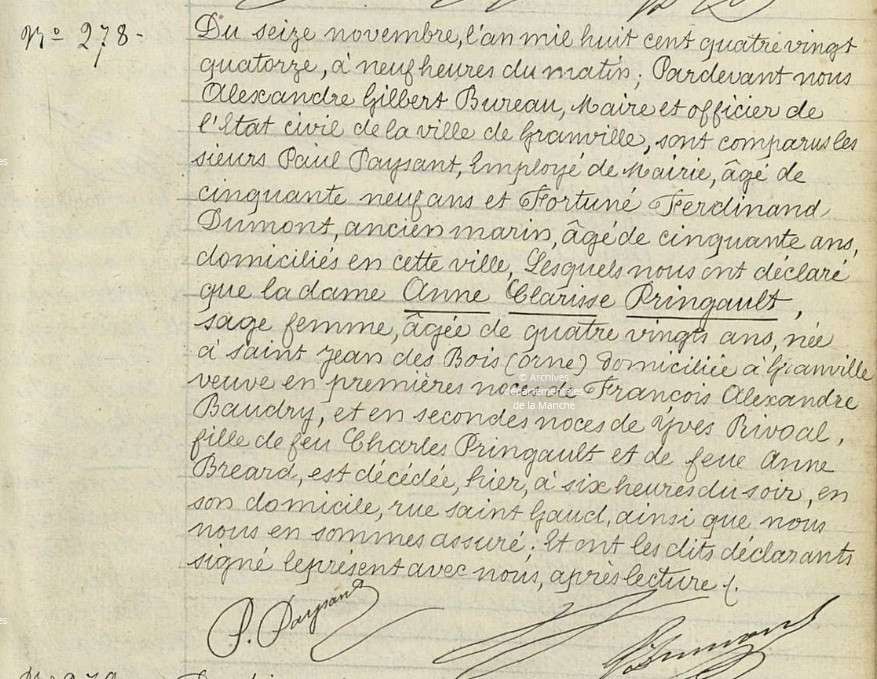 N° 278-
Du seize novembre, l'an mil huit cent quatre vingt
quatorze, à neuf heures du matin; Pardevant nous
Alexandre Gilbert Bureau, Maire et officier de
l'Etat civil de la ville de Granville, sont comparus les
sieurs Paul Paysant, Employé de Mairie, âgé de
cinquante neuf ans et Fortuné Ferdinand
Dumont, ancien marin, âgé de cinquante ans,
domiciliés en cette ville, Lesquels nous ont déclaré
que la dame Anne Clarisse Pringault,
sage femme, âgée de quatre vingts ans, née
à saint Jean des Bois (orne) domiciliée à Granville
veuve en premières noces de François Alexandre
Baudry, et en secondes noces de Yves Rivoal,
fille de feu Charles Pringault et de feue Anne
Breard, est décédée, hier, à six heures du soir, en
son domicile, rue saint Gaud, ainsi que nous
nous en sommes assuré; Et ont les dits déclarants
signé le présent avec nous, après lecture /.
P. Paysant
Dumont
© Archives
départementales
de la Manche